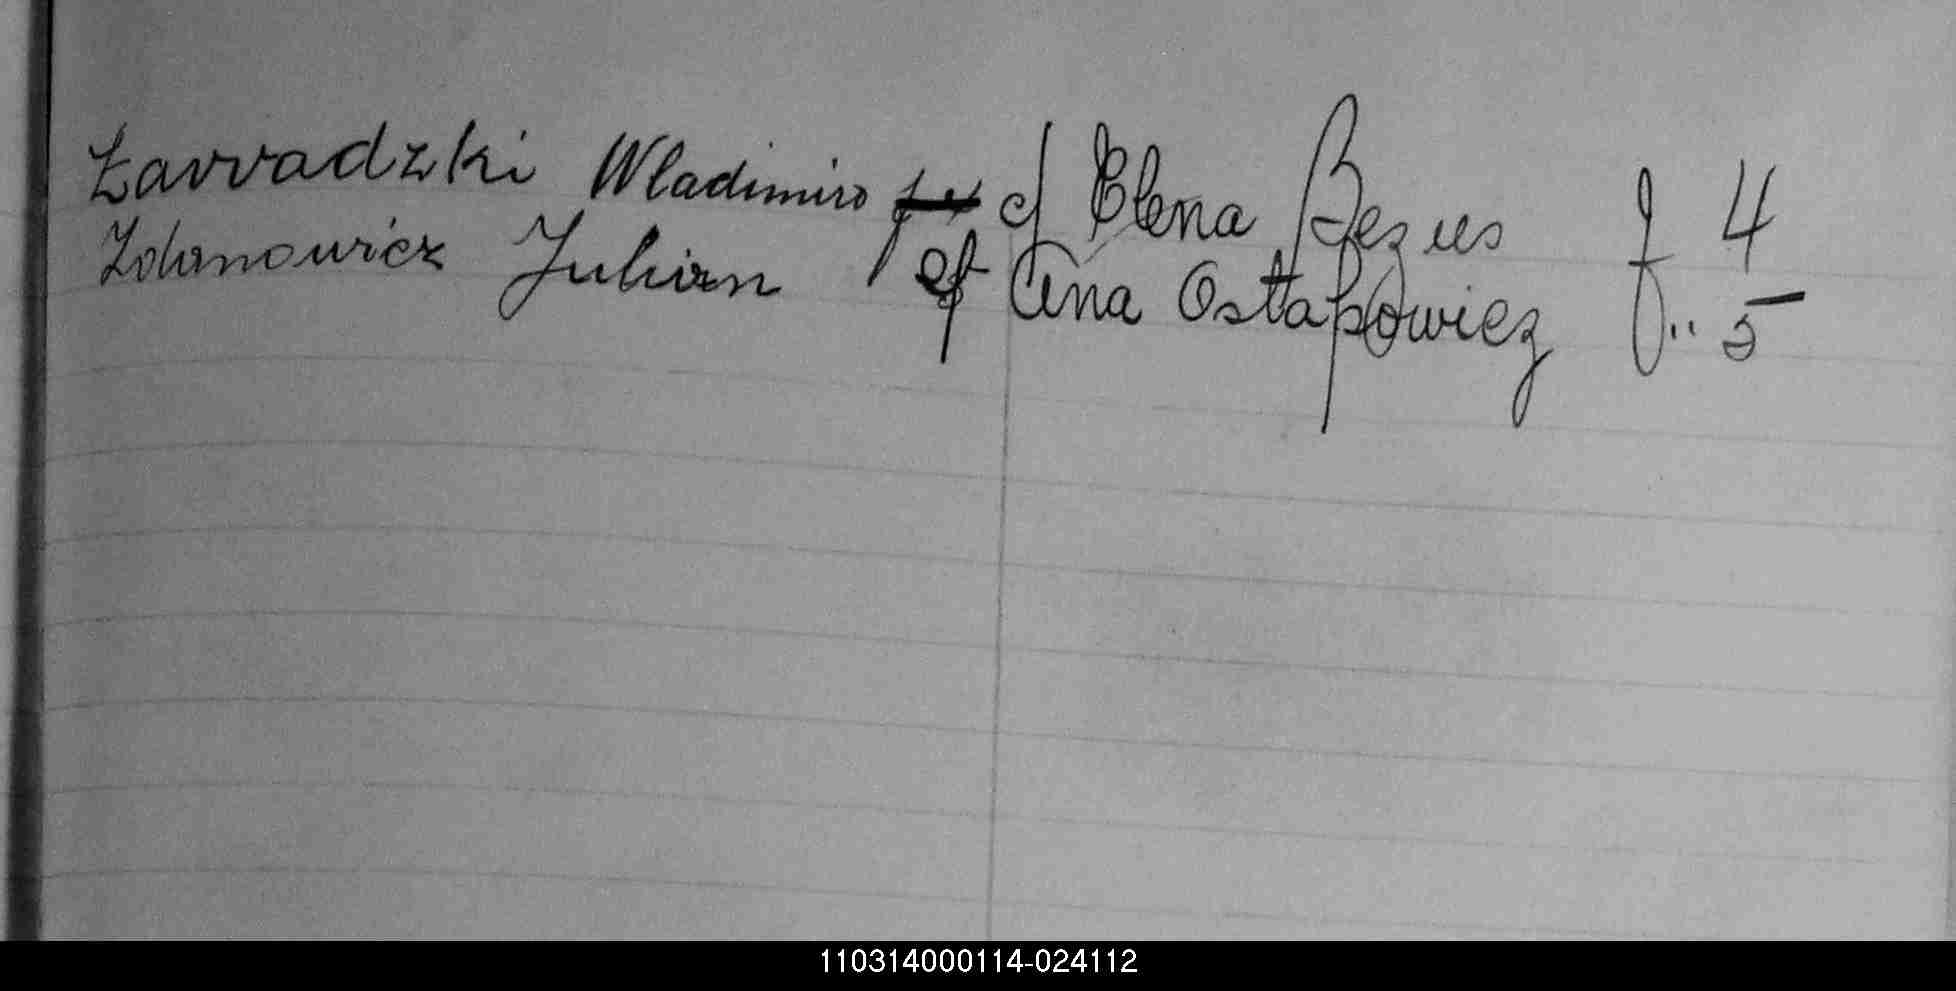 Zawadzki Wladimiro c/ Elena Bezus f 4
Zdanowicz Julian cf Ana Ostapowicz f.. 5
110314000114-024112